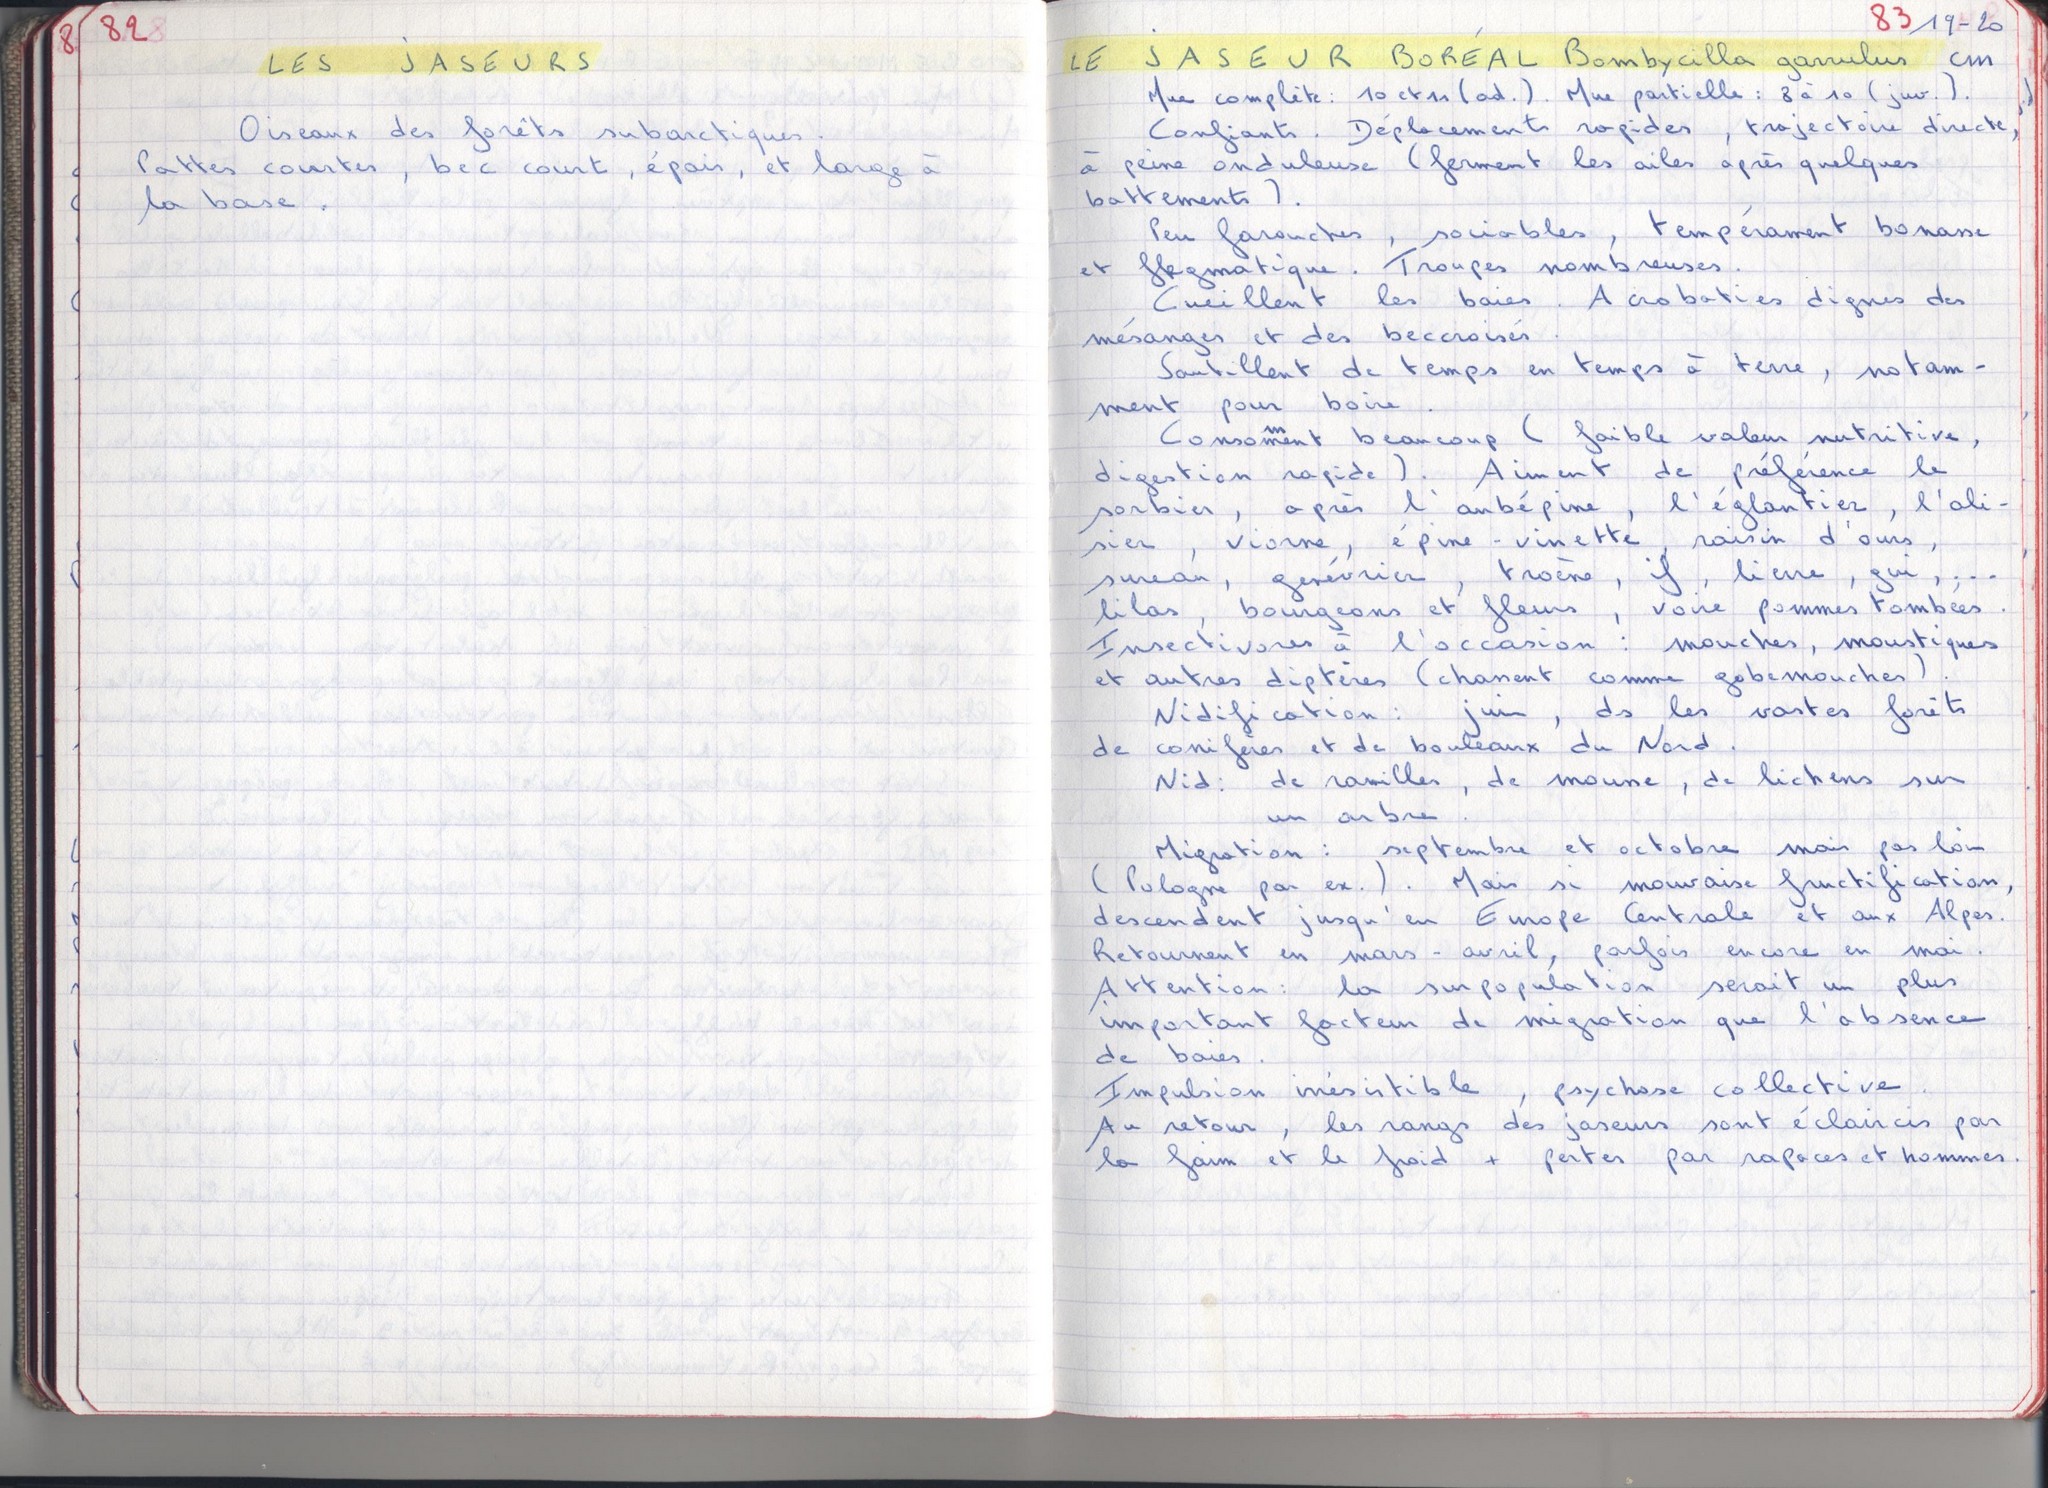 82
LES JASEURS
Oiseaux des forêts subarctiques.
Pattes courtes, bec court, épais, et large à
la base.
83 19-20
LE JASEUR BORÉAL Bombycilla garrulus cm
Mue complète : 10 et 11 (ad.). Mue partielle : 8 à 10 (juv.).
Confiants. Déplacements rapides, trajectoire directe,
à peine onduleuse (ferment les ailes après quelques
battements).
Peu farouches, sociables, tempérament bonasse
et flegmatique. Troupes nombreuses.
Cueillent les baies. Acrobaties dignes des
mésanges et des beccroisés.
Sautillent de temps en temps à terre, notam-
ment pour boire.
Consomment beaucoup (faible valeur nutritive,
digestion rapide). Aiment de préférence le
sorbier, après l'aubépine, l'églantier, l'ali-
sier, viorne, épine-vinette, raisin d'ours,
sureau, genévrier, troène, if, lierre, gui, ...
lilas, bourgeons et fleurs, voire pommes tombées.
Insectivores à l'occasion : mouches, moustiques
et autres diptères (chassent comme gobemouches).
Nidification : juin, ds les vastes forêts
de conifères et de bouleaux du Nord.
Nid : de ramilles, de mousse, de lichens sur
un arbre.
Migration : septembre et octobre mais pas loin
(Pologne par ex.). Mais si mauvaise fructification,
descendent jusqu'en Europe Centrale et aux Alpes.
Retournent en mars-avril, parfois encore en mai.
Attention : la surpopulation serait un plus
important facteur de migration que l'absence
de baies.
Impulsion irrésistible, psychose collective.
Au retour, les rangs des jaseurs sont éclaircis par
la faim et le froid + pertes par rapaces et hommes.